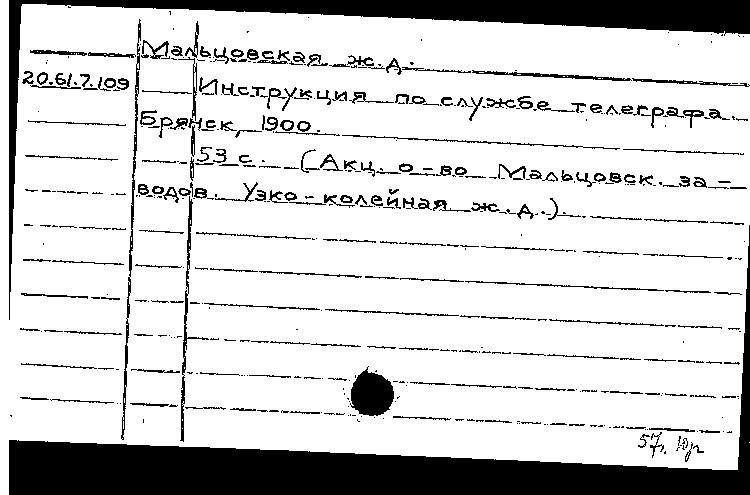 Мальцовская ж.д.
20.61.7.109 Инструкция по службе телеграфа.
Брянск, 1900.
53 с. (Акц. о-во Мальцовск. за-
водов. Узко-колейная ж.д.).